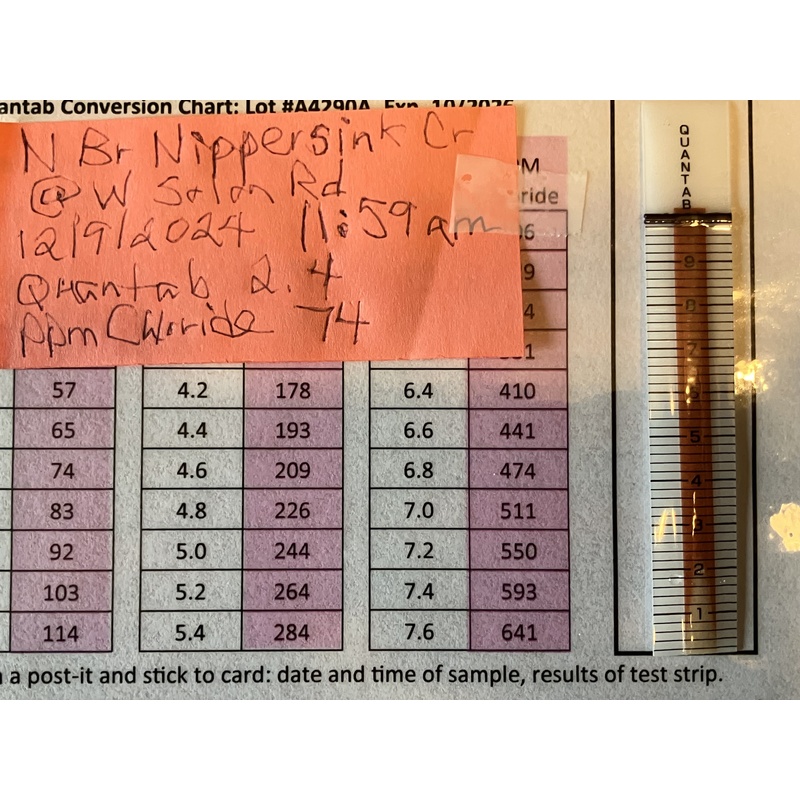 antab Conversion Chart: Lot #A4290A Exp. 10/2026
N Br Nippersink Cr
@ W Solon Rd
12/9/2024 11:59 am
Quantab 2.4
ppm Chloride 74
57 4.2 178 6.4 410
65 4.4 193 6.6 441
74 4.6 209 6.8 474
83 4.8 226 7.0 511
92 5.0 244 7.2 550
103 5.2 264 7.4 593
114 5.4 284 7.6 641
a post-it and stick to card: date and time of sample, results of test strip.
QUANTAB
9
8
7
6
5
4
3
2
1